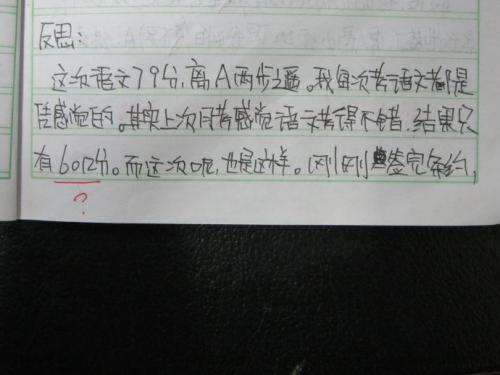 反思:
这次语文79分,离A两步之遥。我每次考语文都是
凭感觉的。其实上次月考感觉语文考得不错,结果只
有60几分。而这次呢,也是这样。(刚刚签完条约,
?